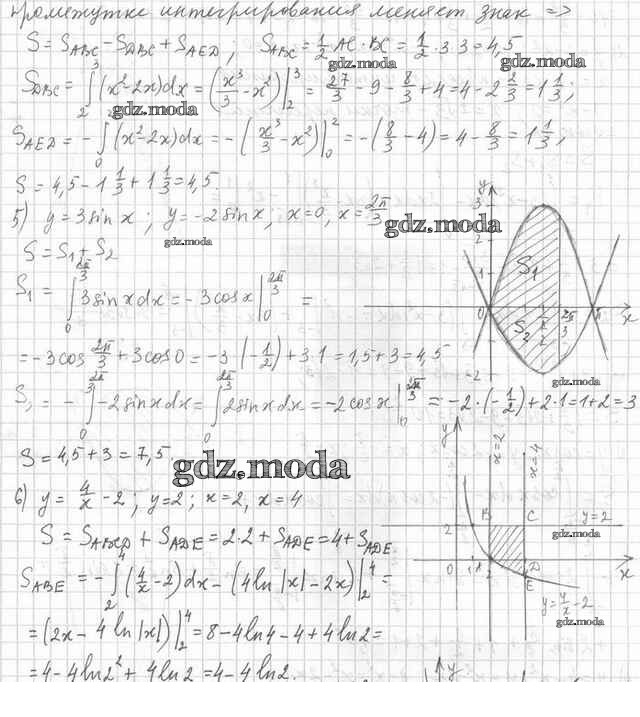 промежутке интегрирования меняет знак =>
S = S_ABC - S_DBC + S_AED; S_ABC = 1/2 AC · BC = 1/2 · 3 · 3 = 4,5
S_DBC = ∫₂³ (x² - 2x)dx = (x³/3 - x²)|₂³ = 27/3 - 9 - 8/3 + 4 = 4 - 2 2/3 = 1 1/3;
S_AED = -∫₀² (x² - 2x)dx = -(x³/3 - x²)|₀² = -(8/3 - 4) = 4 - 8/3 = 1 1/3;
S = 4,5 - 1 1/3 + 1 1/3 = 4,5.
5) y = 3sin x; y = -2sin x, x = 0, x = 2π/3
S = S₁ + S₂
S₁ = ∫₀^(2π/3) 3sin x dx = -3cos x|₀^(2π/3) =
= -3cos 2π/3 + 3cos 0 = -3(-1/2) + 3·1 = 1,5 + 3 = 4,5
S₂ = -∫₀^(2π/3) -2sin x dx = ∫₀^(2π/3) 2sin x dx = -2cos x|₀^(2π/3) = -2·(-1/2) + 2·1 = 1 + 2 = 3
S = 4,5 + 3 = 7,5
6) y = 4/x - 2; y = 2; x = 2, x = 4
S = S_ABCD + S_ADE = 2·2 + S_ADE = 4 + S_ADE
S_ABE = -∫₂⁴ (4/x - 2)dx - (4ln|x| - 2x)|₂⁴ =
= (2x - 4ln|x|)|₂⁴ = 8 - 4ln4 - 4 + 4ln2 =
= 4 - 4ln2² + 4ln2 = 4 - 4ln2.
y
3
2
1
S₁
0
S₂
π/2
2π/3
π
x
-2
y
x = 2
x = 4
B
C
y = 2
2
0
1
A
D
x
2
4
E
y = 4/x - 2
y
gdz.moda
gdz.moda
gdz.moda
gdz.moda
gdz.moda
gdz.moda
gdz.moda
gdz.moda
gdz.moda
gdz.moda
gdz.moda